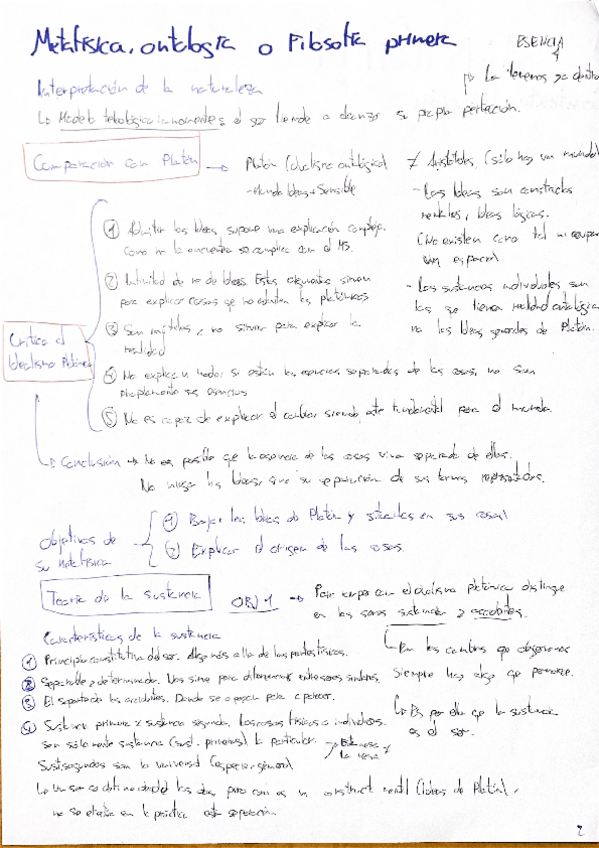 Metafísica, ontología o Filosofía primera
ESENCIA
La tenemos ya dentro
Interpretación de la naturaleza
Modelo teleológico inmanente: el ser tiende a alcanzar su propia perfección.
Comparación con Platón → Platón (dualismo ontológico) ≠ Aristóteles (sólo hay un mundo)
- Mundo Ideas + Sensible
- Las Ideas son constructos
mentales, ideas lógicas.
(No existen como tal ni ocupan
un espacio)
- Las sustancias individuales son
las que tienen realidad ontológica
no las Ideas generales de Platón.
Crítica al
Idealismo Platónico
① Admitir las Ideas supone una explicación compleja.
Como no la encuentra se complica con el MS.
② Infinitud de nº de Ideas. Estos argumentos sirven
para explicar cosas que no admiten los platónicos
③ Son inútiles, no sirven para explicar la
realidad
④ No explican nada: si están las esencias separadas de las cosas, no son
propiamente sus esencias
⑤ No es capaz de explicar el cambio siendo este fundamental para el mundo.
Conclusión → No es posible que la esencia de las cosas viva separada de ellas.
No niega las Ideas, sino su separación de sus formas
Objetivos de
su metafísica
① Bajar las Ideas de Platón y situarlas en sus cosas
② Explicar el origen de las cosas.
Teoría de la sustancia OBJ 1 → Para romper con el dualismo platónico distingue
en los seres sustancia y accidentes.
En los cambios que observamos
siempre hay algo que permanece.
Es por ello que la sustancia
es el ser.
Características de la sustancia
① Principio constitutivo del ser. Algo más allá de las partes físicas.
② Separable y determinado. Nos sirve para diferenciar entre seres similares.
③ El soporte de los accidentes. Donde se apoyan para aparecer.
④ Sustancia primera y sustancia segunda. Las cosas físicas o individuales
son sólo mente sustancia (sust. primeras) lo particular. → Esta mesa y
la mesa
Sust. segundas son lo universal (especie general)
un constructo mental (Ideas de Platón),
no se efectúa en la práctica esta separación.
2